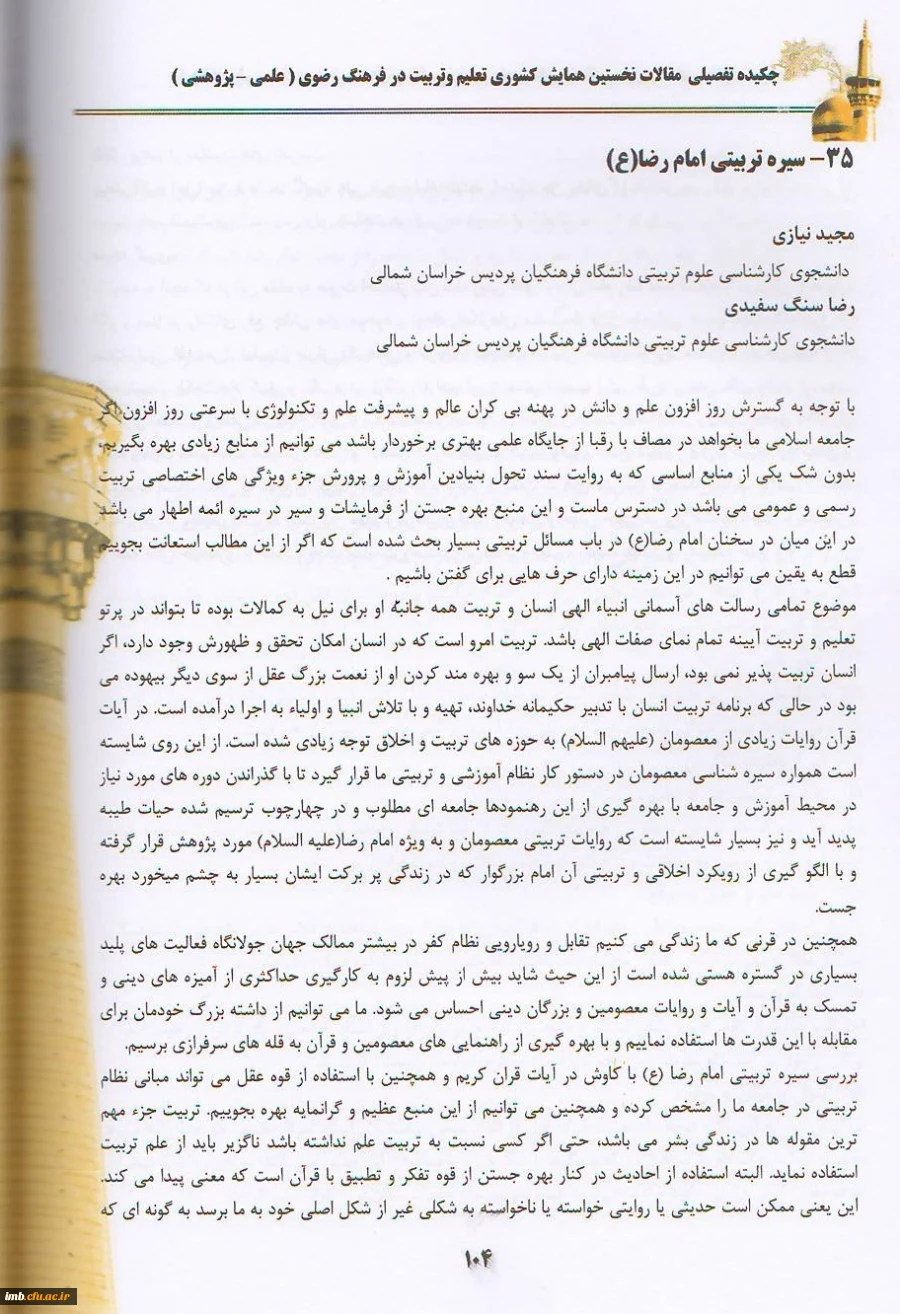 چکیده تفصیلی مقالات نخستین همایش کشوری تعلیم وتربیت در فرهنگ رضوی ( علمی - پژوهشی )
۳۵- سیره تربیتی امام رضا(ع)
مجید نیازی
دانشجوی کارشناسی علوم تربیتی دانشگاه فرهنگیان پردیس خراسان شمالی
رضا سنگ سفیدی
دانشجوی کارشناسی علوم تربیتی دانشگاه فرهنگیان پردیس خراسان شمالی
با توجه به گسترش روز افزون علم و دانش در پهنه بی کران عالم و پیشرفت علم و تکنولوژی با سرعتی روز افزون اگر
جامعه اسلامی ما بخواهد در مصاف با رقبا از جایگاه علمی بهتری برخوردار باشد می توانیم از منابع زیادی بهره بگیریم،
بدون شک یکی از منابع اساسی که به روایت سند تحول بنیادین آموزش و پرورش جزء ویژگی های اختصاصی تربیت
رسمی و عمومی می باشد در دسترس ماست و این منبع بهره جستن از فرمایشات و سیر در سیره ائمه اطهار می باشد
در این میان در سخنان امام رضا(ع) در باب مسائل تربیتی بسیار بحث شده است که اگر از این مطالب استعانت بجوییم
قطع به یقین می توانیم در این زمینه دارای حرف هایی برای گفتن باشیم .
موضوع تمامی رسالت های آسمانی انبیاء الهی انسان و تربیت همه جانبه او برای نیل به کمالات بوده تا بتواند در پرتو
تعلیم و تربیت آیینه تمام نمای صفات الهی باشد. تربیت امرو است که در انسان امکان تحقق و ظهورش وجود دارد، اگر
انسان تربیت پذیر نمی بود، ارسال پیامبران از یک سو و بهره مند کردن او از نعمت بزرگ عقل از سوی دیگر بیهوده می
بود در حالی که برنامه تربیت انسان با تدبیر حکیمانه خداوند، تهیه و با تلاش انبیا و اولیاء به اجرا درآمده است. در آیات
قرآن روایات زیادی از معصومان (علیهم السلام) به حوزه های تربیت و اخلاق توجه زیادی شده است. از این روی شایسته
است همواره سیره شناسی معصومان در دستور کار نظام آموزشی و تربیتی ما قرار گیرد تا با گذراندن دوره های مورد نیاز
در محیط آموزش و جامعه با بهره گیری از این رهنمودها جامعه ای مطلوب و در چهارچوب ترسیم شده حیات طیبه
پدید آید و نیز بسیار شایسته است که روایات تربیتی معصومان و به ویژه امام رضا(علیه السلام) مورد پژوهش قرار گرفته
و با الگو گیری از رویکرد اخلاقی و تربیتی آن امام بزرگوار که در زندگی پر برکت ایشان بسیار به چشم میخورد بهره
جست.
همچنین در قرنی که ما زندگی می کنیم تقابل و رویارویی نظام کفر در بیشتر ممالک جهان جولانگاه فعالیت های پلید
بسیاری در گستره هستی شده است از این حیث شاید بیش از پیش لزوم به کارگیری حداکثری از آمیزه های دینی و
تمسک به قرآن و آیات و روایات معصومین و بزرگان دینی احساس می شود. ما می توانیم از داشته بزرگ خودمان برای
مقابله با این قدرت ها استفاده نماییم و با بهره گیری از راهنمایی های معصومین و قرآن به قله های سرفرازی برسیم.
بررسی سیره تربیتی امام رضا (ع) با کاوش در آیات قران کریم و همچنین با استفاده از قوه عقل می تواند مبانی نظام
تربیتی در جامعه ما را مشخص کرده و همچنین می توانیم از این منبع عظیم و گرانمایه بهره بجوییم. تربیت جزء مهم
ترین مقوله ها در زندگی بشر می باشد، حتی اگر کسی نسبت به تربیت علم نداشته باشد ناگزیر باید از علم تربیت
استفاده نماید. البته استفاده از احادیث در کنار بهره جستن از قوه تفکر و تطبیق با قرآن است که معنی پیدا می کند.
این یعنی ممکن است حدیثی یا روایتی خواسته یا ناخواسته به شکلی غیر از شکل اصلی خود به ما برسد به گونه ای که
۱۰۴
imb.cfu.ac.ir